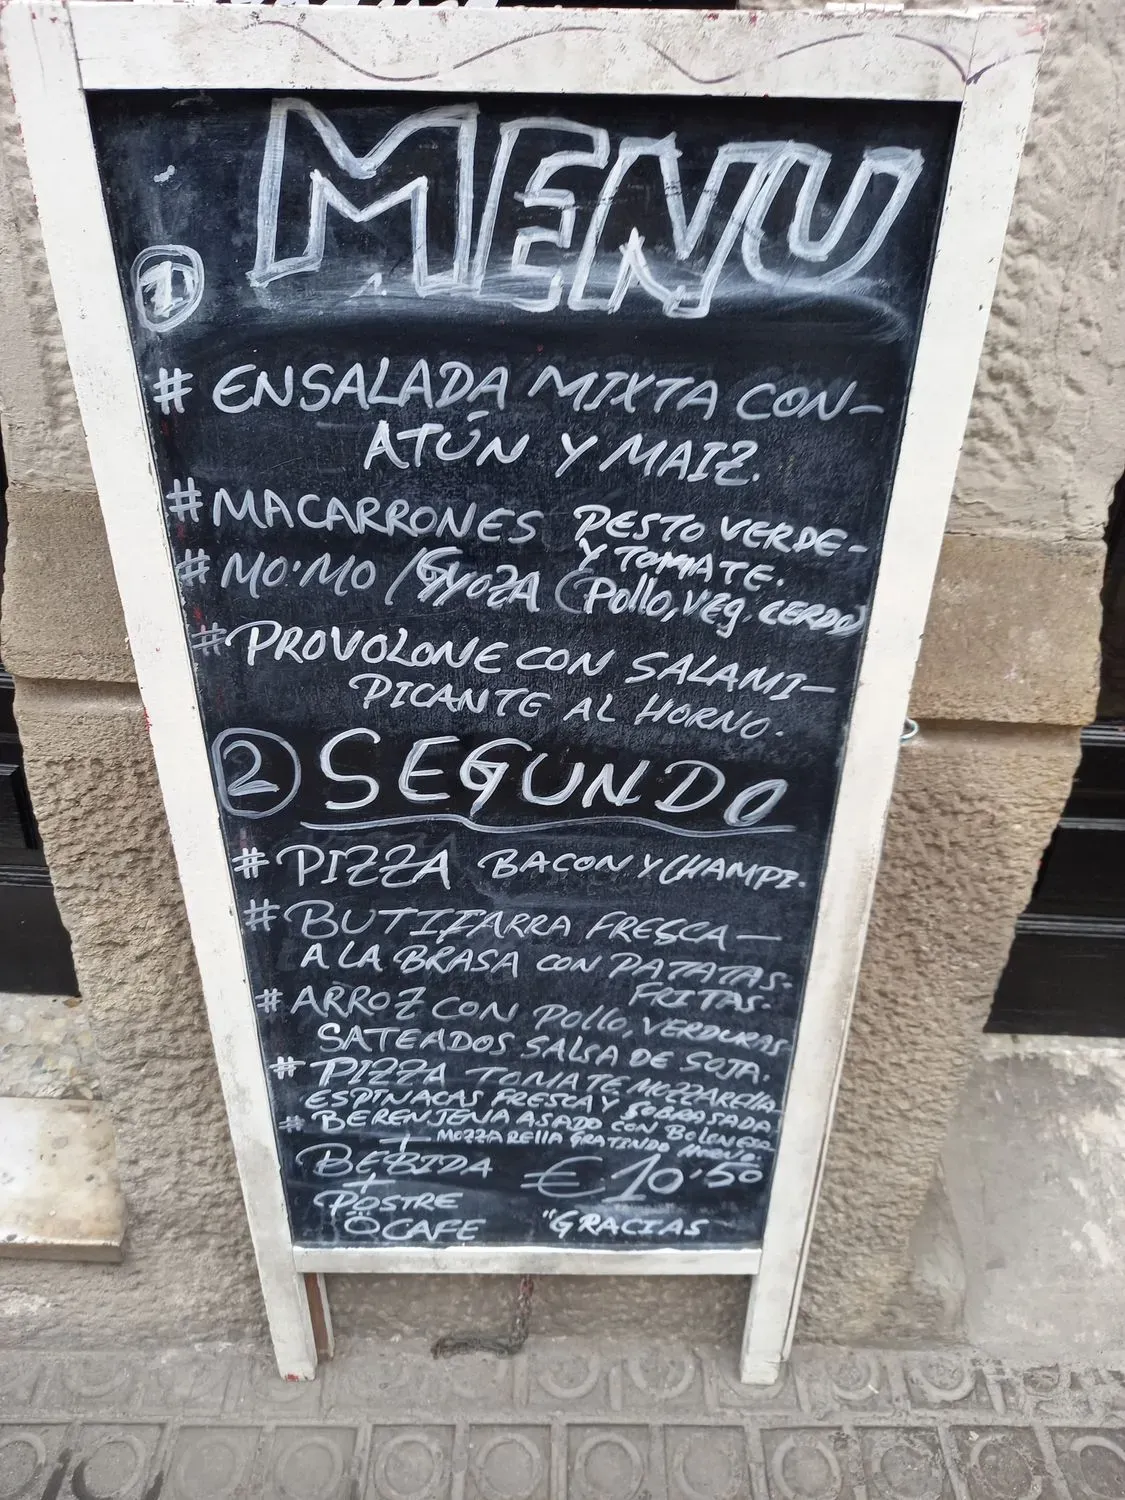 MENU
1
# ENSALADA MIXTA CON-
ATÚN Y MAIZ.
# MACARRONES PESTO VERDE-
Y TOMATE.
# MO·MO / Gyoza (Pollo, VEg. CERDO)
# PROVOLONE CON SALAMI-
PICANTE AL HORNO.
2 SEGUNDO
# PIZZA BACON Y CHAMPI.
# BUTIFARRA FRESCA-
A LA BRASA CON PATATAS-
FRITAS.
# ARROZ CON Pollo, VERDURAS
SATEADOS SALSA DE SOJA.
# PIZZA TOMATE MOZZARElla-
ESPINACAS FRESCA Y SOBRASADA
# BERENJENA ASADO CON
+ MOZZARElla GRATINDO HORNO.
BEBIDA € 10'50
+
POSTRE
Ö CAFE "GRACIAS